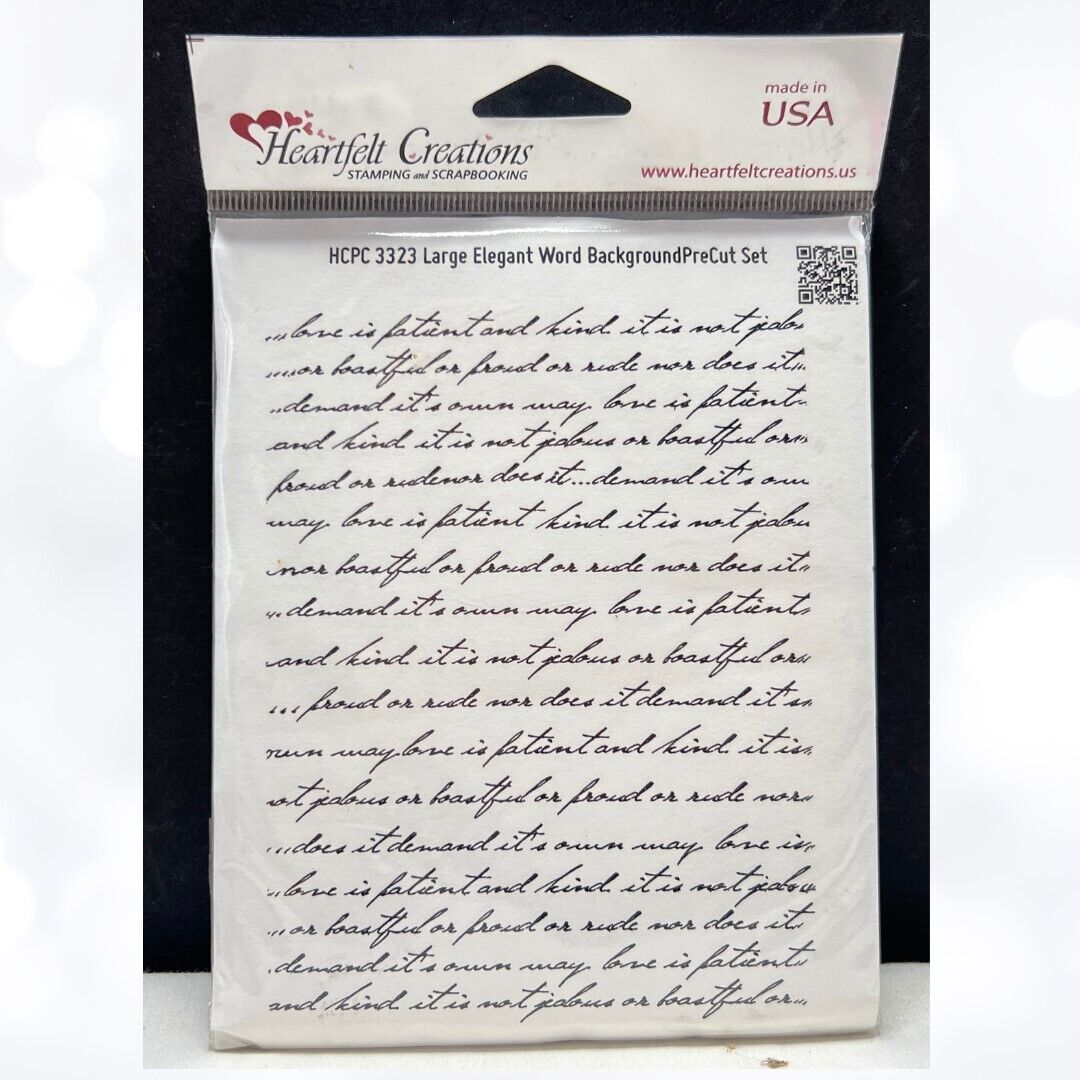 made in
USA
Heartfelt Creations
STAMPING and SCRAPBOOKING
www.heartfeltcreations.us
HCPC 3323 Large Elegant Word BackgroundPreCut Set
...love is patient and kind it is not jealo
....or boastful or proud or rude nor does it...
..demand it's own way love is patient
and kind it is not jealous or boastful or
proud or rude nor does it...demand it's own
way love is patient kind it is not jealou
nor boastful or proud or rude nor does it
...demand it's own way love is patient
and kind it is not jealous or boastful or
... proud or rude nor does it demand it's
own way love is patient and kind it is
not jealous or boastful or proud or rude nor
...does it demand it's own way love is
..love is patient and kind it is not jealou
...or boastful or proud or rude nor does it
.demand it's own way love is patient
and kind it is not jealous or boastful or...